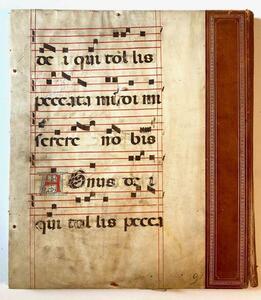 de i qui tol lis
peccata mūdi mi
serere no bis
Agnus de i
qui tol lis pecca